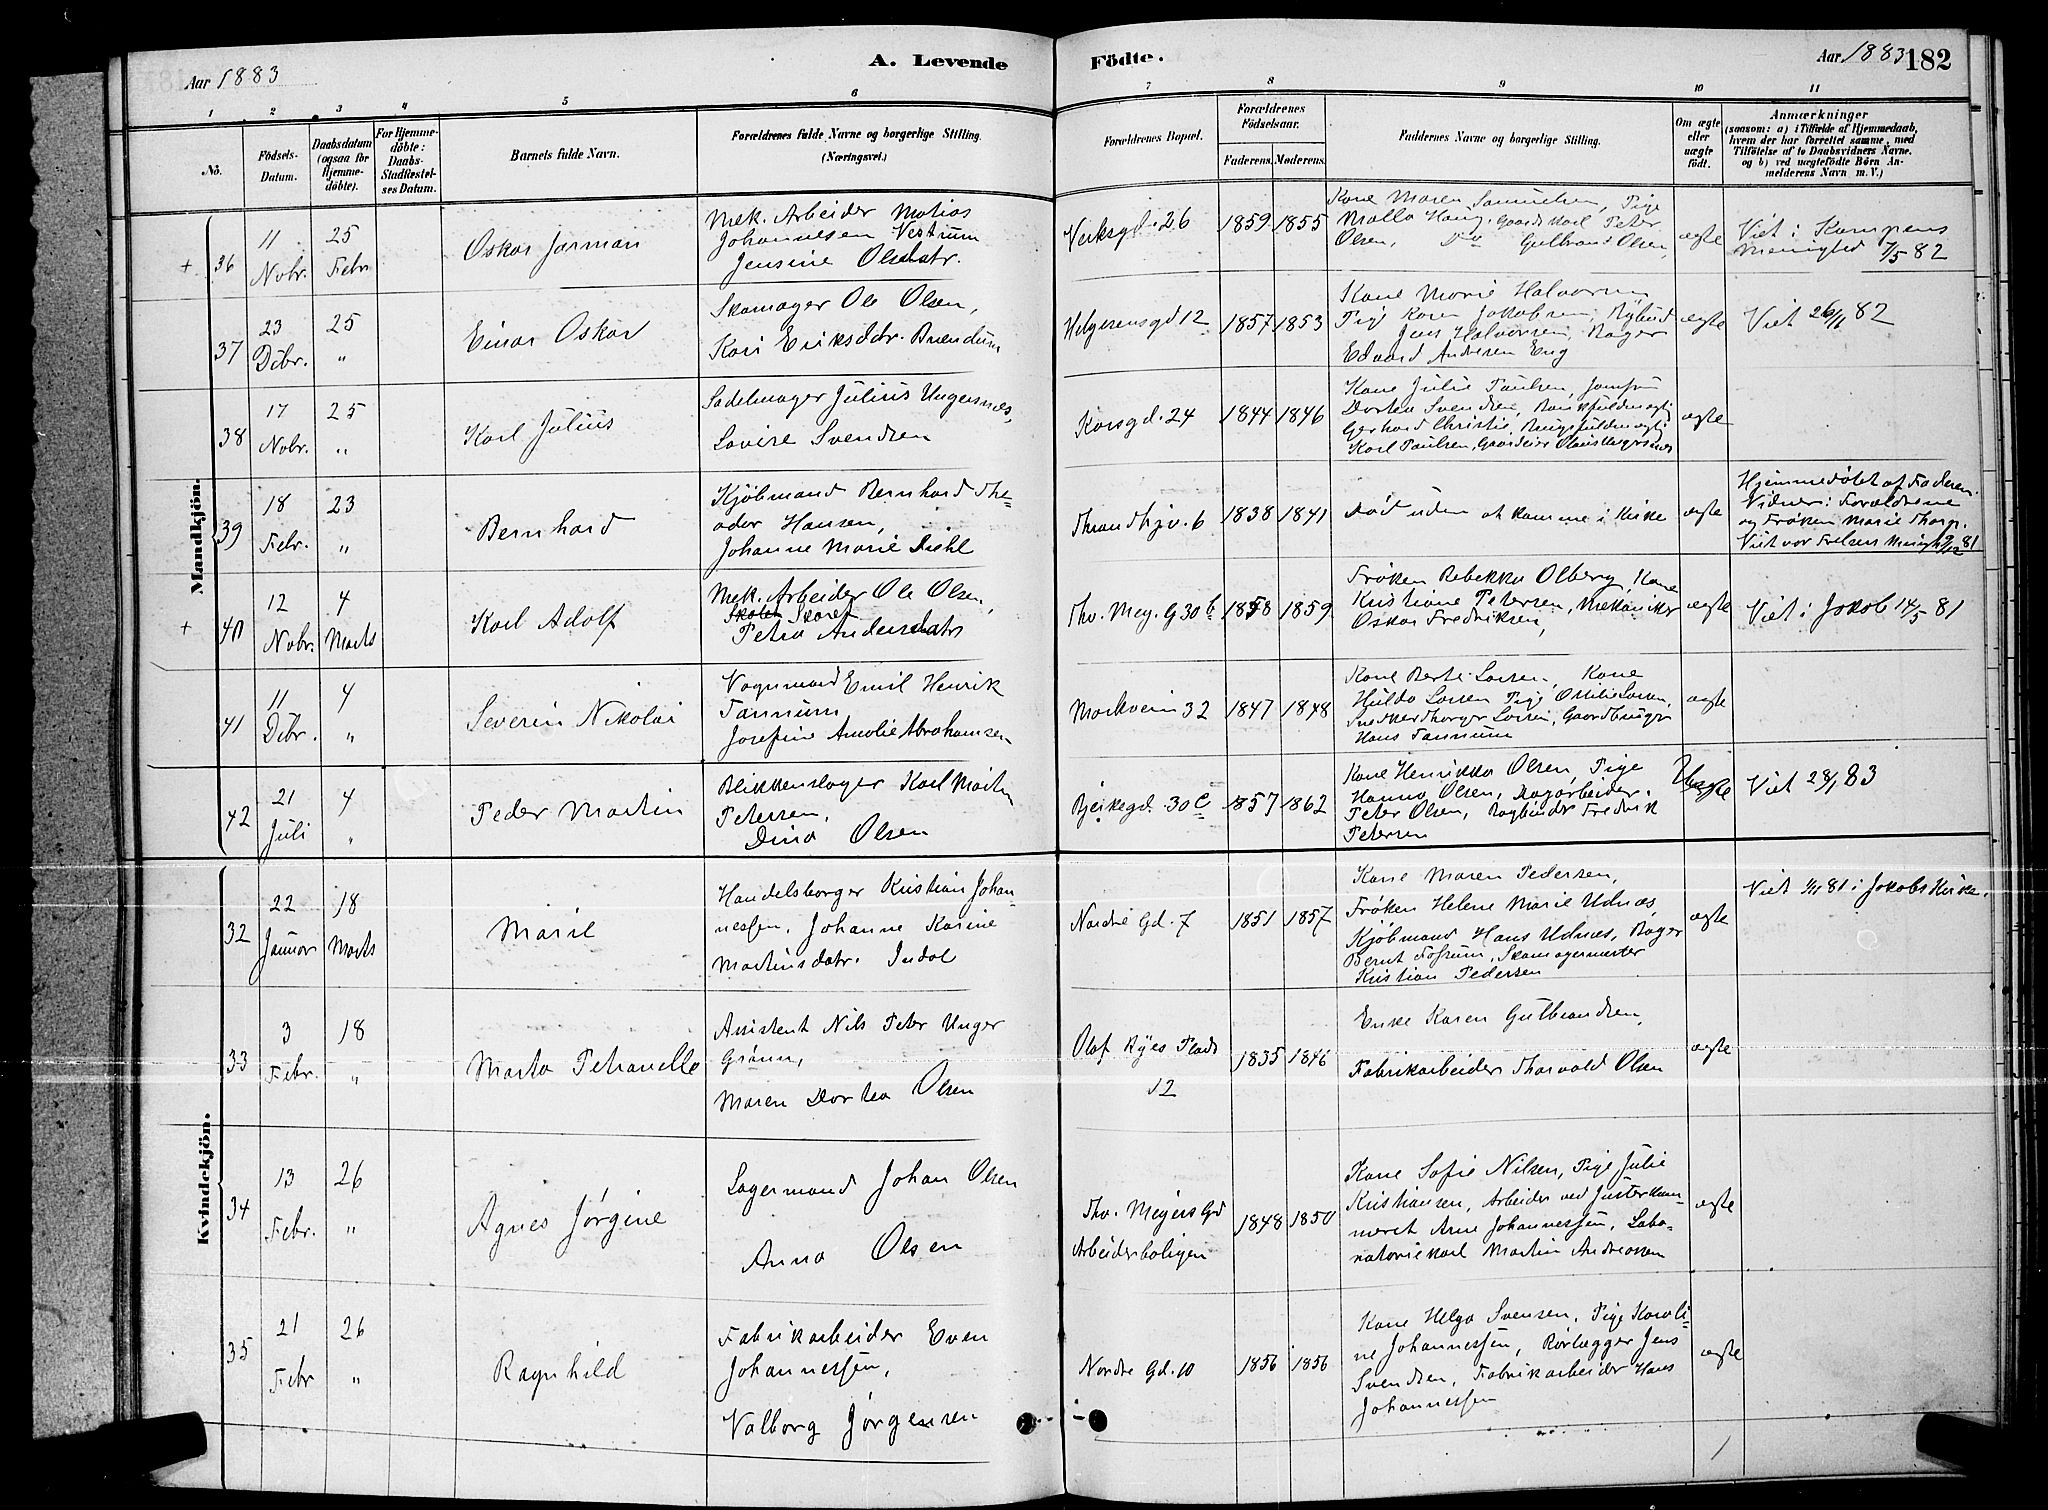 Aar 1883
A. Levende
Födte.
Aar 1883
182
1 2 3 4 5 6 7 8 9 10 11
No.
Födsels-Datum.
Daabsdatum (ogsaa for Hjemme-döbte).
For Hjemme-döbte: Daabs-Stadfæstel-ses Datum.
Barnets fulde Navn.
Forældrenes fulde Navne og borgerlige Stilling.
(Næringsvei.)
Forældrenes Bopæl.
Forældrenes Födselsaar.
Faderens. Moderens.
Faddernes Navne og borgerlige Stilling.
Om ægte eller uægte födt.
Anmærkninger
(saasom: a) i Tilfælde af Hjemmedaab,
hvem der har forrettet samme, med
Tilföielse af to Daabsvidners Navne,
og b) ved uægtefödte Börn An-
melderens Navn m. V.)
Mandkjön.
+ 36
11 Nobr.
25 Febr
Oskar Jarman
Mek. Arbeider Matias
Johannesen Vestrum
Jensine Olsdatr.
Verksgd. 26
1859 1855
Kone Maren Samuelsen, Pige
Olsen, Do Gulbrand Olsen,
ægte
Viet i Kampens
Menighed 7/5 82
37
23 Dcbr.
25 "
Einar Oskar
Skomager Ole Olsen,
Kari Eriksdtr. Buendum
Helgesensgd 12
1857 1853
Kone Marie Halvorsen
Pige Karen Jakobsen,
Jens Halvorsen, Bager
Edvard Andersen Eng
ægte
Viet 26/1 82
38
17 Nobr.
25 "
Karl Julius
Sadelmager Julius Ungersnæs,
Lovise Svendsen
Korsgd. 24
1844 1846
Kone Julie Paulsen, Jomfru
Dortea Svendsen, Bankfuldmægtig
Gerhard Christie,
Karl Paulsen, Gaardeier
ægte
39
18 Febr.
23 "
Bernhard
Kjöbmand Bernhard The=
odor Hansen,
Johanne Marie Diehl
Thrandhjv. 6
1838 1841
Död uden at komme i Kirke
ægte
Hjemmedöbt af Faderen.
Vidner: Forældrene
og Fröken Marie Thorp.
Viet vor Frelsers Menigh 9/12 81
+ 40
12 Nobr.
4 Marts
Karl Adolf
Mek. Arbeider Ole Olsen,
Petra Andersdatr
Thv. Mey. G 30 b
1858 1859
Fröken Rebekka Olberg, Kone
Kristiane Petersen, Mekaniker
Oskar Fredriksen,
ægte
Viet i Jakob 14/5 81
41
11 Dcbr.
4 "
Severin Nikolai
Vognmand Emil Henrik
Tannum
Josefine Amalie Abrahamsen
Markveien 32
1847 1848
Kone Berte Larsen, Kone
Hulda Larsen Pige Otilie Larsen,
Snedker Thorger Larsen, Gaardbruger
Hans Tannum
ægte
42
21 Juli
4 "
Peder Martin
Blikkenslager Karl Martin
Petersen,
Dina Olsen
Bjerkegd. 30 c
1857 1862
Kone Henrikka Olsen, Pige
Hanna Olsen, Dagarbeider
Peter Olsen, Bogbinder Fredrik
Petersen
Uægte
Viet 28/1 83
Kvindekjön.
32
22 Januar
18 Marts
Marie
Handelsborger Kristian Johan-
nessen, Johanne Karine
Martinsdatr. Indal
Nordre Gd. 7
1851 1857
Kone Maren Pedersen,
Fröken Helene Marie Udnæs,
Kjöbmand Hans Udnæs, Bager
Bernt Fossum, Skomagermester
Kristian Pedersen
ægte
Viet 1/11 81 i Jakobs Kirke.
33
3 Febr.
18 "
Marta Petronelle
Assistent Nils Peter Unger
Grönn,
Maren Dortea Olsen
Olaf Ryes Plads
12
1835 1846
Enke Karen Gulbrandsen,
Fabrikarbeider Thorvald Olsen
ægte
34
13 Febr.
26 "
Agnes Jörgine
Lagermand Johan Olsen
Anna Olsen
Thv. Meyers Gd
Arbeiderboligen
1848 1850
Kone Sofie Nilsen, Pige Julie
Kristiansen, Arbeider ved Justerkam-
meret Arne Johannessen, Labo-
ratoriekarl Martin Andreassen
ægte
35
21 Febr
26 "
Ragnhild
Fabrikarbeider Even
Johannessen,
Valborg Jörgensen
Nordre Gd. 10
1856 1856
Kone Helga Svensen, Pige Karoli=
ne Johannessen, Rörlægger Jens
Svendsen, Fabrikarbeider Hans
Johannessen
ægte